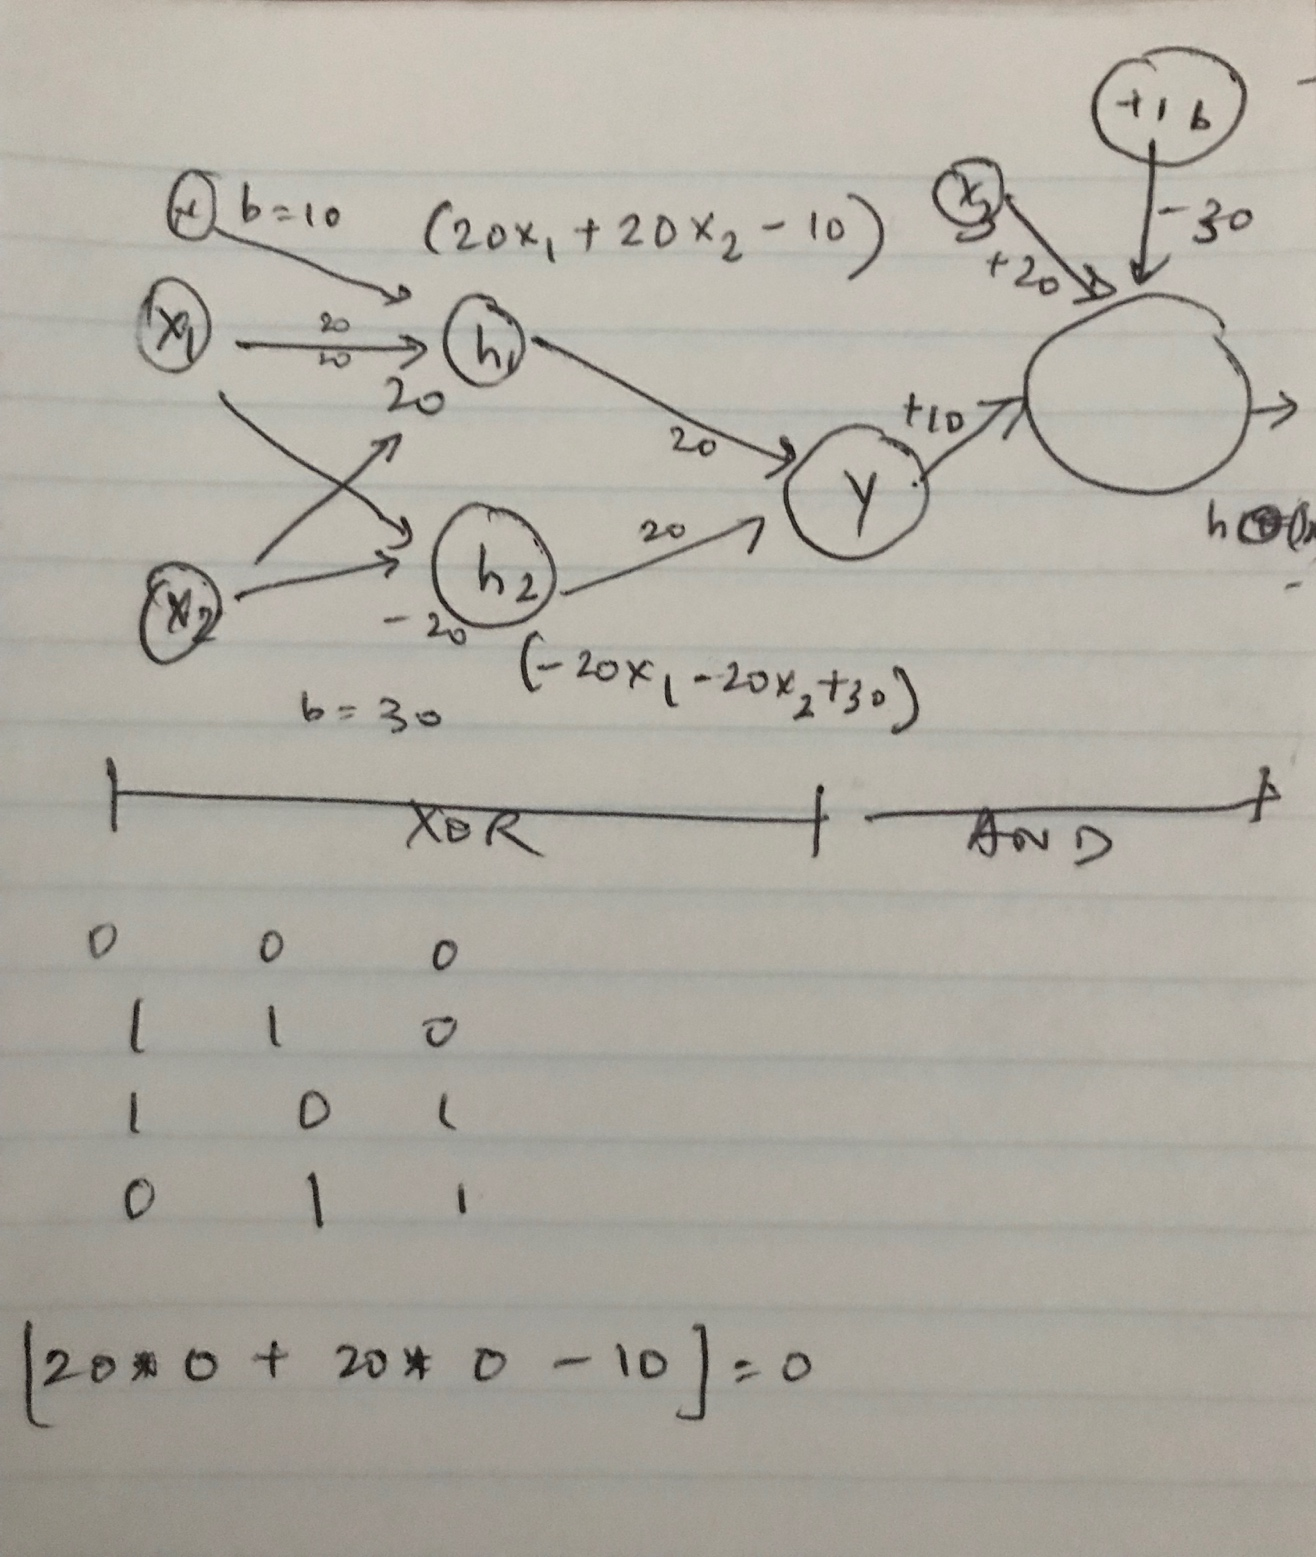 +1 b
x3
b=10 (20x₁ + 20x₂ - 10)
-30
+20
x₁
20
20
h₁
20
+10
20
y
20
h₂
x₂
-20
(-20x₁ -20x₂+30)
b=30
XOR AND
0 0 0
1 1 0
1 0 1
0 1 1
[20*0 + 20*0 - 10]=0